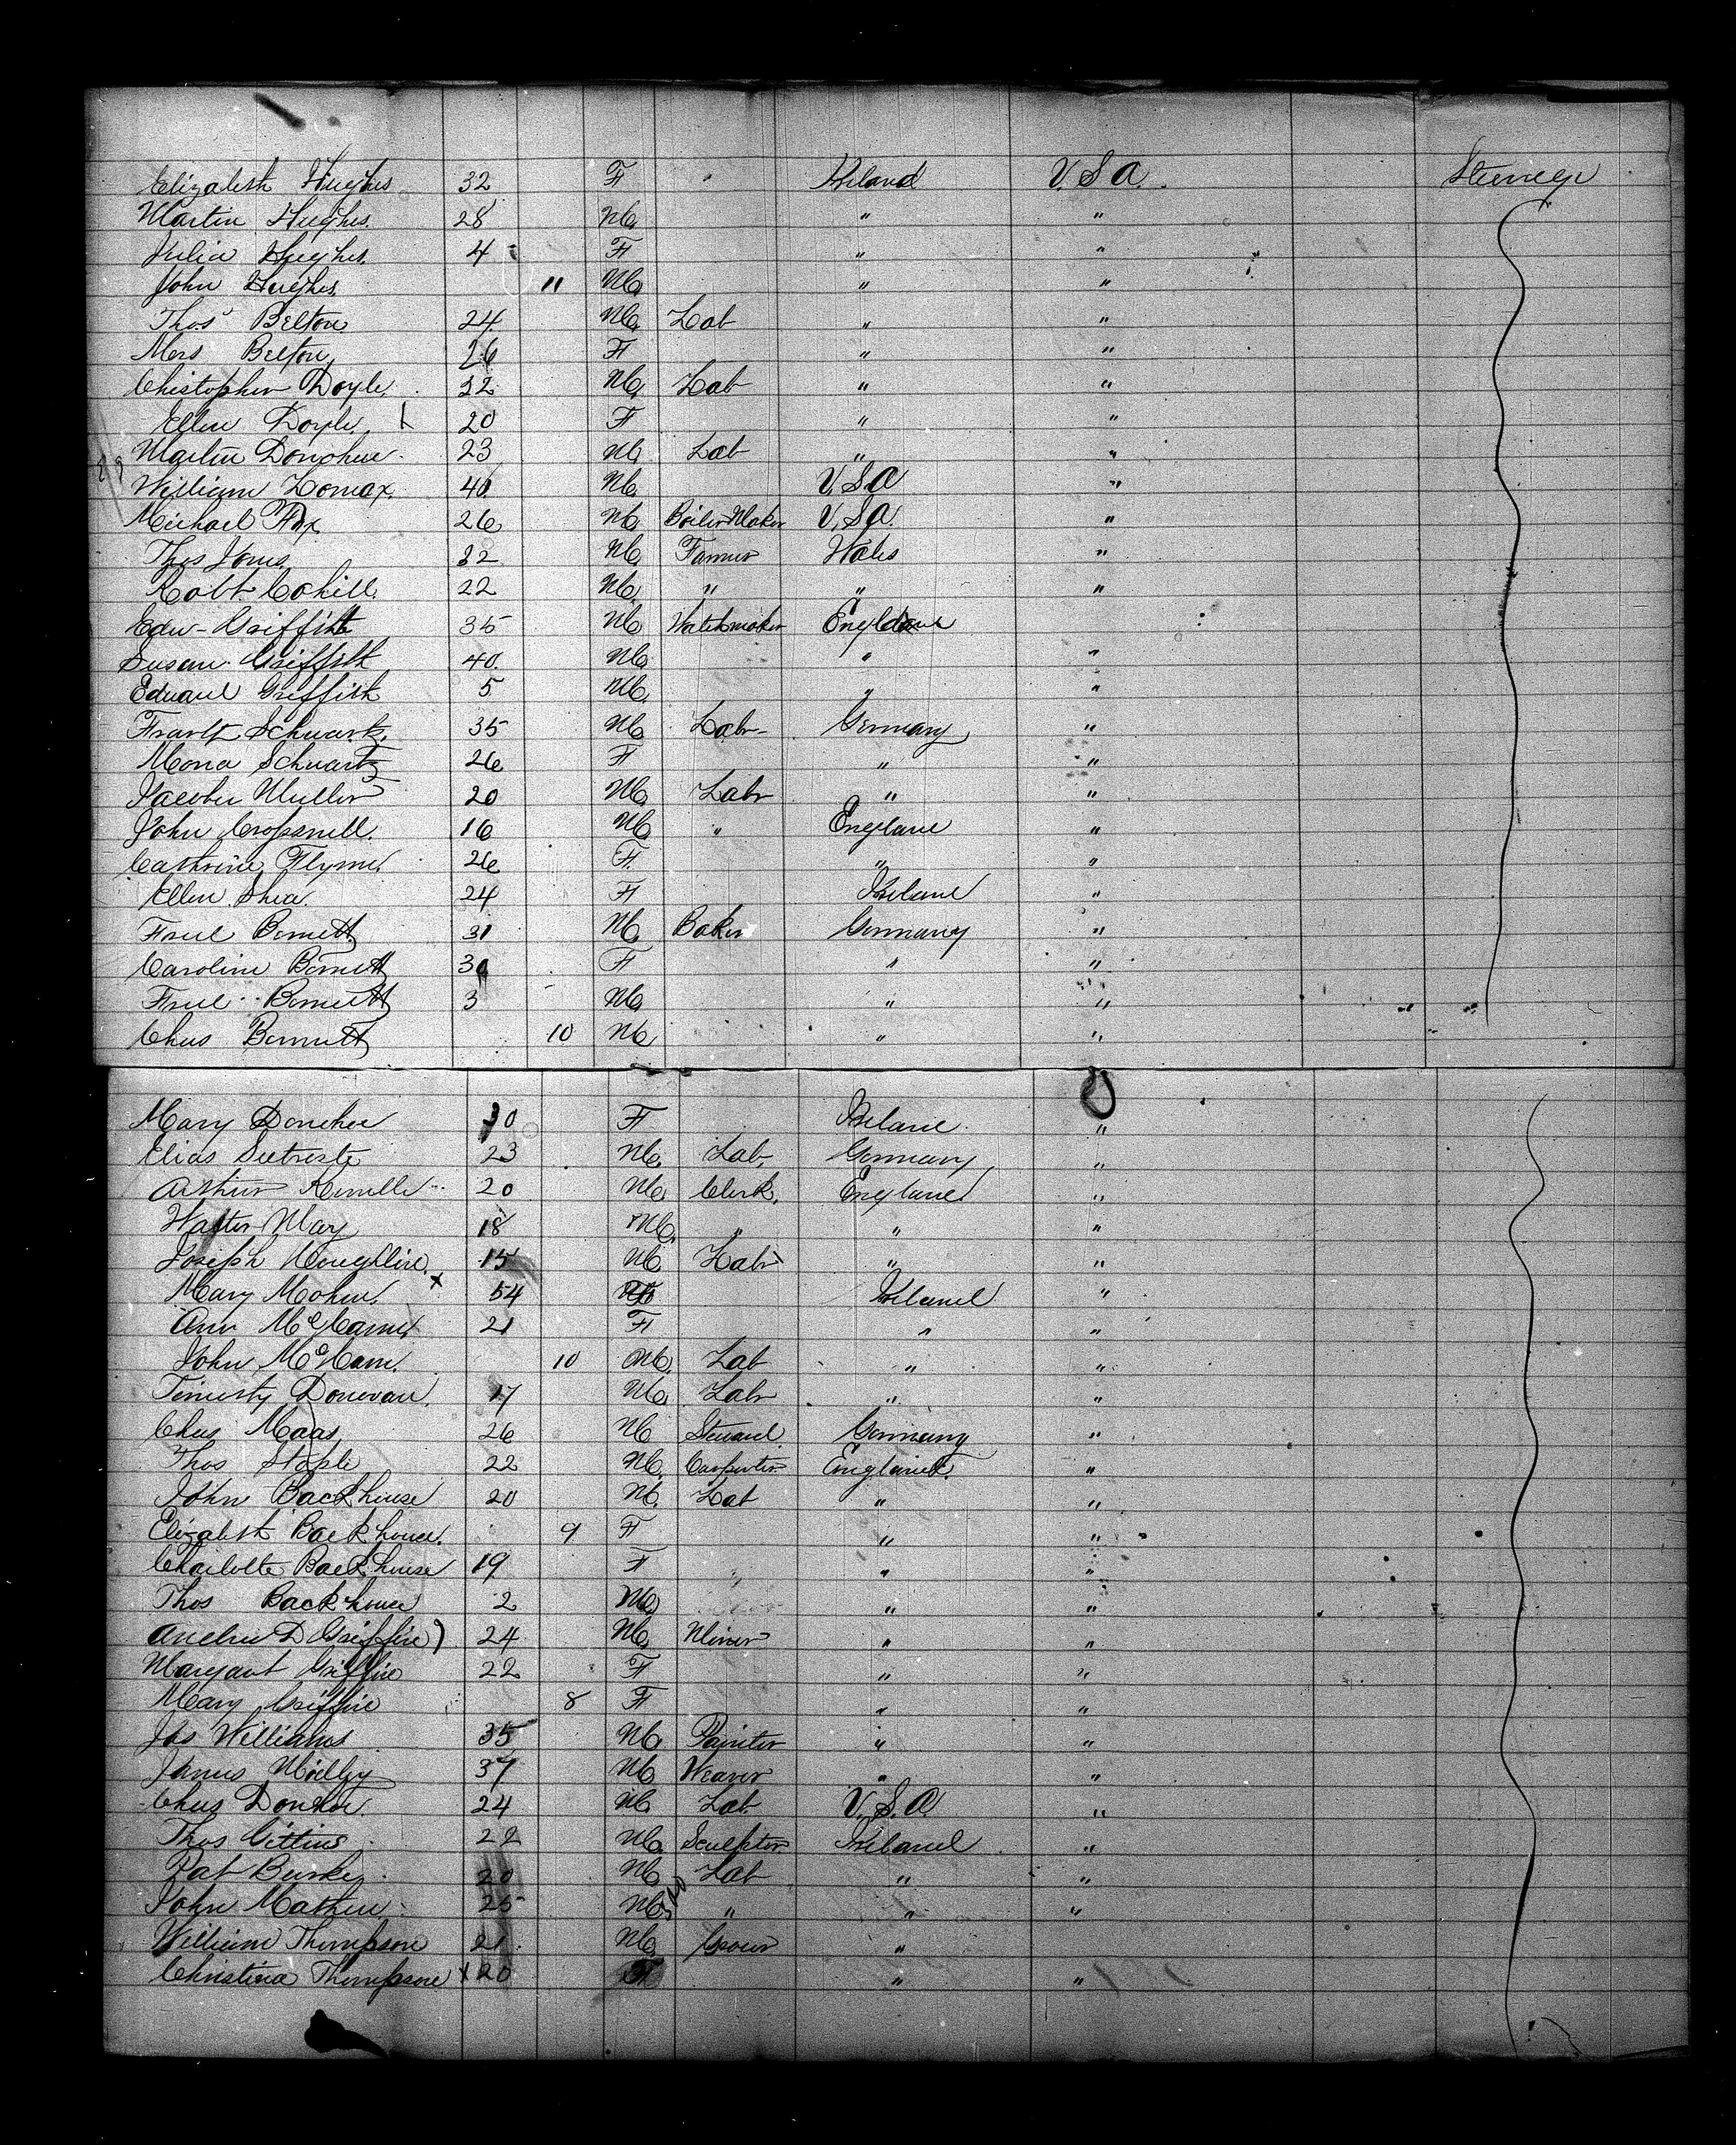 Elizabeth Hughes 32 F Ireland U.S.A. Steerage
Martin Hughes. 28 M " "
Julia Hughes. 4 F " "
John Hughes 11 M " "
Thos Belton 24 M Lab " "
Mrs Belton 26 F " "
Chistopher Doyle. 32 M Lab " "
Ellen Doyle. 20 F " "
Martin Donohue 23 M Lab " "
William Lomax. 40 M U.S.A "
Michael Fox 26 M Boiler Maker U.S.A. "
Thos Jones 32 M Farmer Wales "
Robt Cohill. 22 M " " "
Edw- Griffith 35 M Watchmaker England
Susan Griffith 40. M " "
Edward Griffith 5 M " "
Schwartz. 35 M Labr Germany "
Mona Schwartz 26 F " "
Muller 20 M Labr " "
John 16 M " England "
Cathrine Flynn 26 F. " "
Ellen Shea. 24 F Ireland "
Fred Bennett 31 M Baker Germany "
Caroline Bennett 30 F " "
Fred Bennett 3 M " "
Chas Bennett 10 M " "
Mary Donohue 30 F Ireland "
Elias 23 M Lab. Germany "
Arthur 20 M Clerk. England "
Walter May 18 M " " "
Joseph 15 M Labr " "
Mary Mohen. x 54 F Ireland "
Ann McCann 21 F " "
John McCann. 10 M Lab " "
Timosty Donovan. 17 M Labr " "
Chas Maas 26 M Steward Germany "
Thos Staple 22 M Carpenter England "
John Backhouse 20 M Lab " "
Elizabeth Backhouse. 9 F " "
Charlotte Backhouse 19 F " "
Thos Backhouse 2 M " "
Andrew D Griffin 24 M Miner " "
Margaret Griffin 22 F " "
Mary Griffin 8 F " "
Jas Williams 35 M Painter " "
James 37 M Weaver " "
Chas 24 M Lab U.S.A. "
Thos Gittins 22 M Sculptor Ireland "
Pat Burke 20 M Lab " "
John Mathew 25 M " " "
William Thompson 21 M "
Christina Thompson x 20 F " "